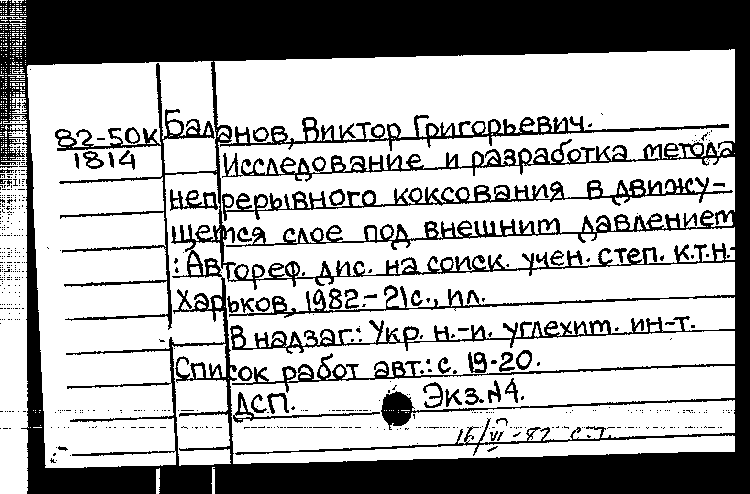 82-50К Баланов, Виктор Григорьевич.
1814 Исследование и разработка метода
непрерывного коксования в движу-
щемся слое под внешним давлением
: Автореф. дис. на соиск. учен. степ. к.т.н.-
Харьков, 1982.- 21с., ил.
В надзаг.: Укр. н.-и. углехим. ин-т.
Список работ авт.: с. 19-20.
ДСП. Экз.№4.
16/VI-82